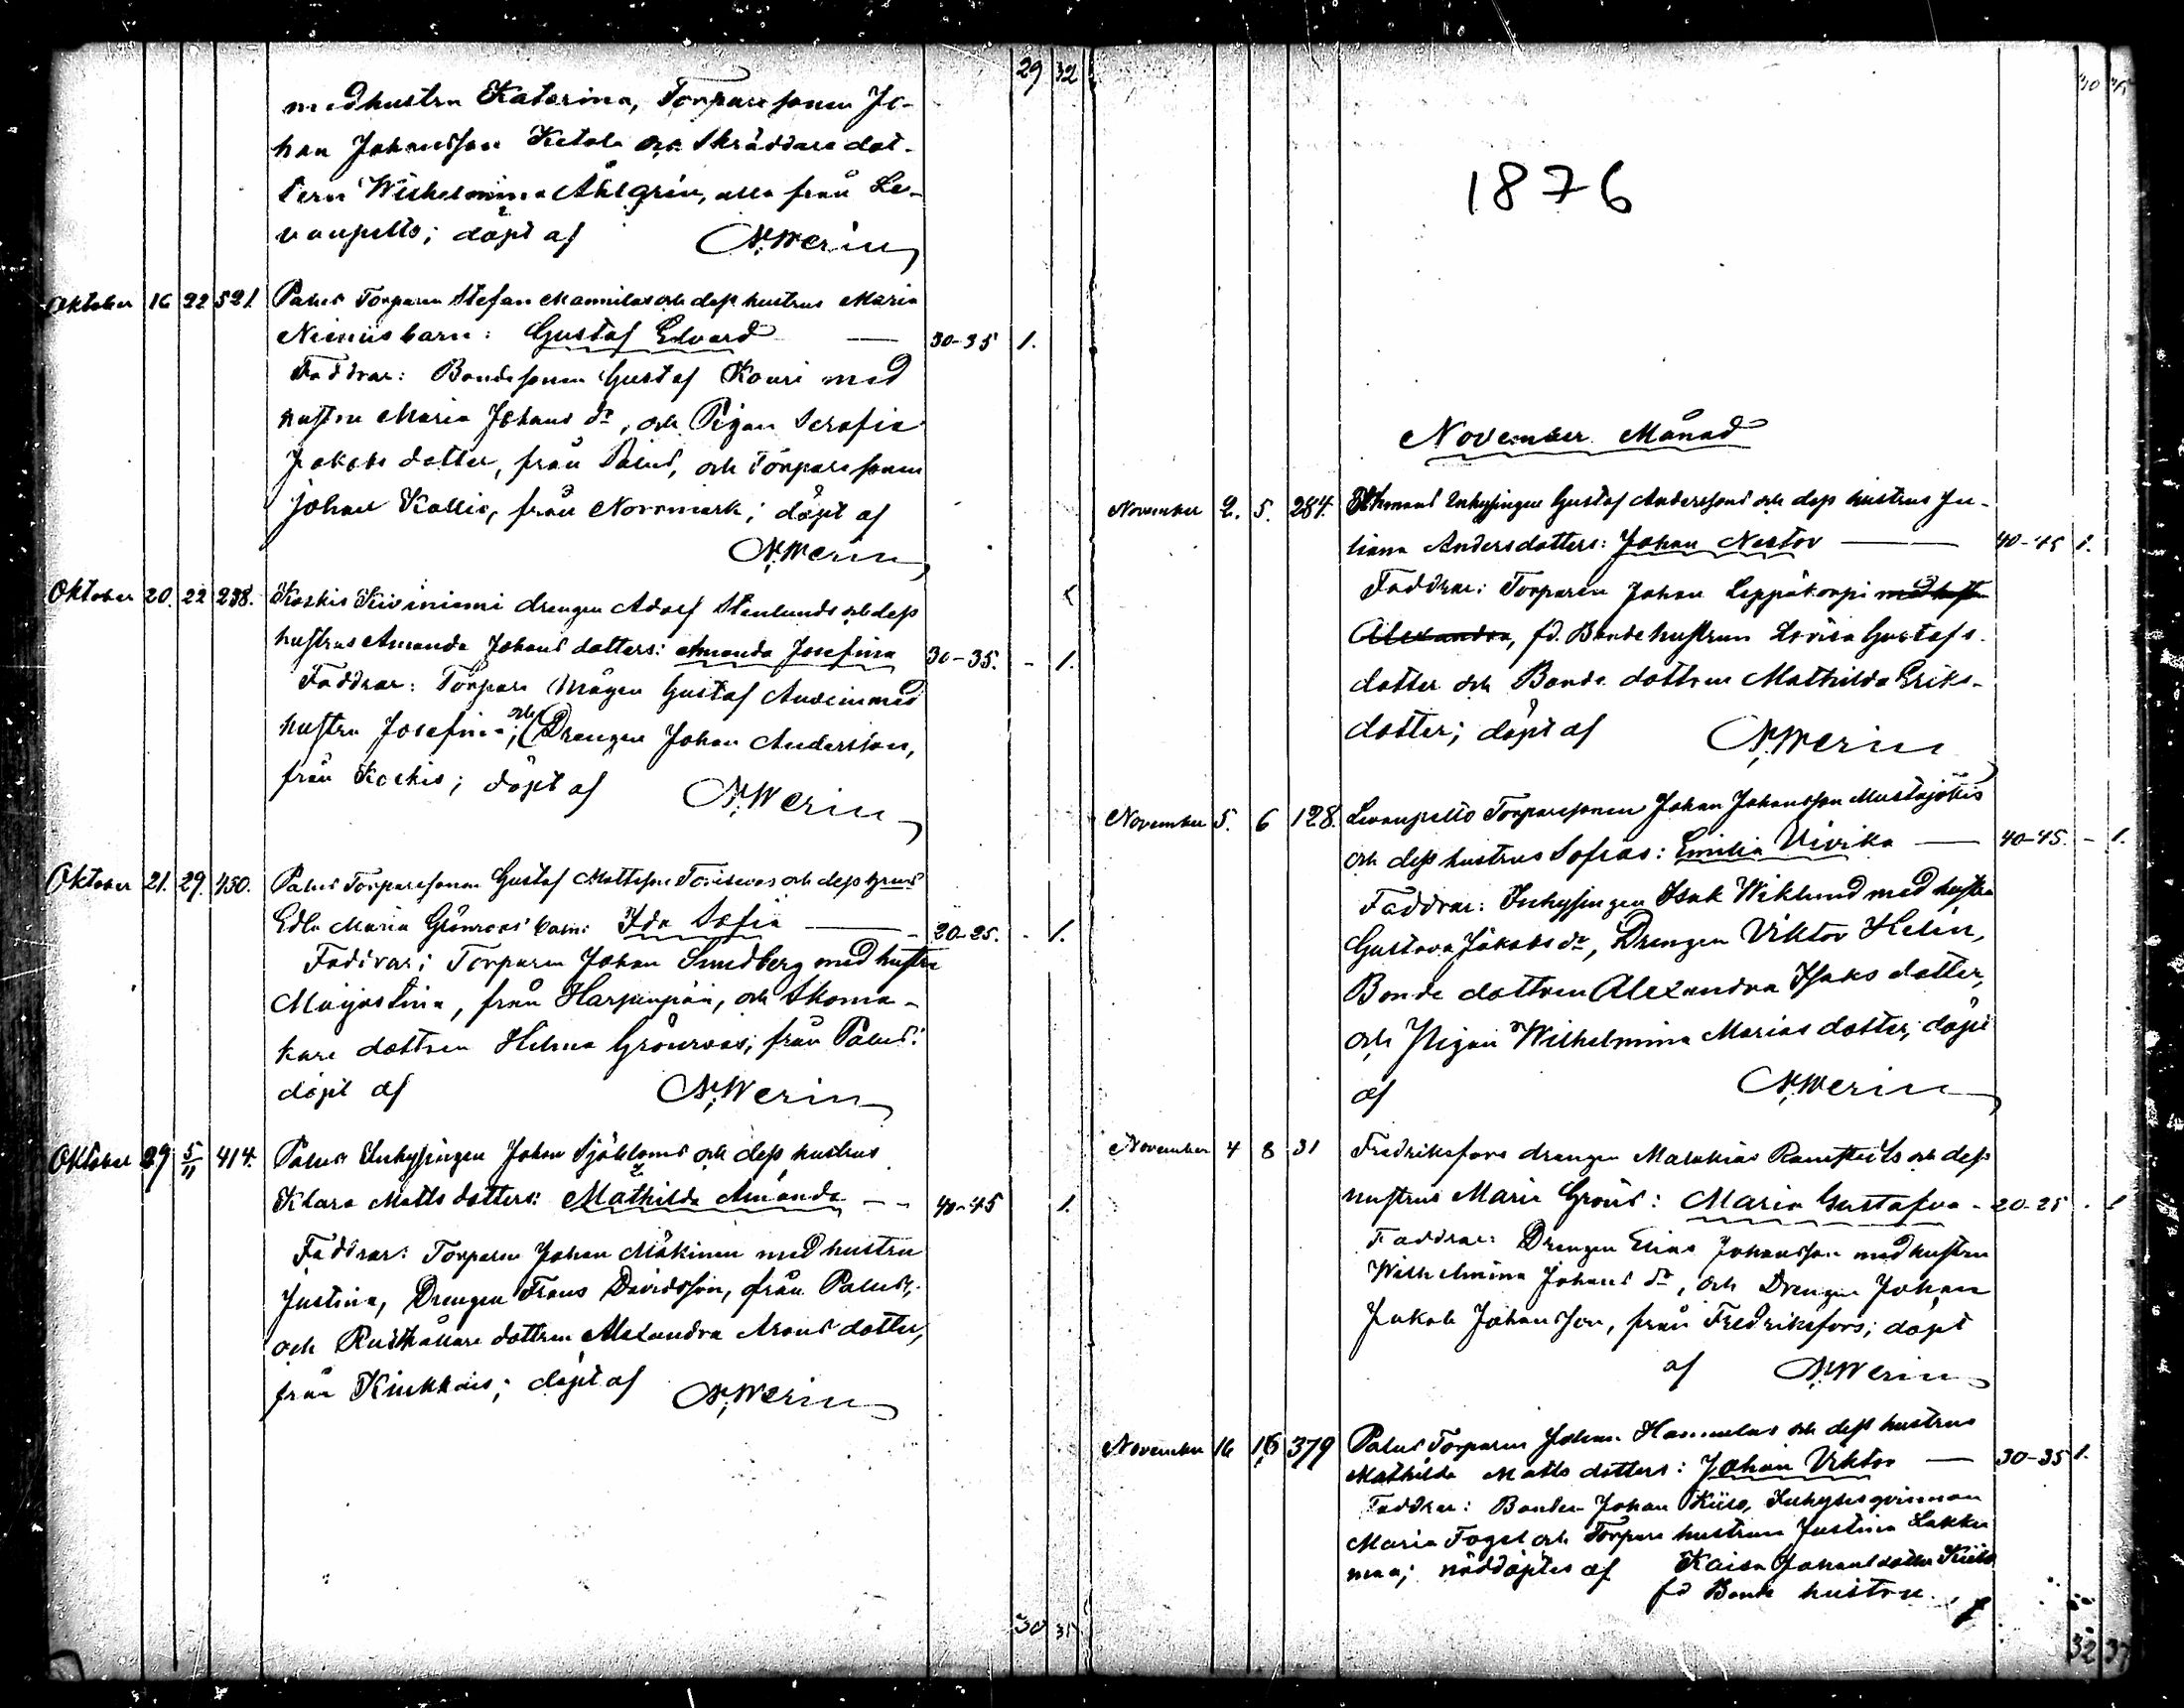 29 32
med hustru Katarina, Torparesonen Jo-
han Johansson Ketola och Skräddaredot-
tern Wilhelmina Ahlgrén, alla från Le-
vanpelto; döpt af N. Werin
Oktober 16 22 521. Palus Torparen Stefan Mannilas och dess hustrus Maria
Niemis barn: Gustaf Edvard — 30-35 1.
Faddrar: Bondesonen Gustaf Kouri med
hustru Maria Johans dr, och Pigan Serafia
Jakobs dotter, från Palus, och Torparesonen
Johan Kallio, från Norrmark; döpt af
N. Werin
Oktober 20. 22 238. Koskis Kiviniemi drengen Adolf Stenlunds och dess
hustrus Amanda Johans dotters: Amanda Josefina 30-35. - 1.
Faddrar: Torpare mågen Gustaf Andein med
hustru Josefina, och Drengen Johan Andersson,
från Koskis; döpt af N. Werin
Oktober 21. 29. 450. Palus Torparesonen Gustaf Mattsson Toriseva's och dess hustrus
Edla Maria Grönroos' barn: Ida Sofia — 20-25. - 1.
Faddrar: Torparen Johan Sundberg med hustru
Majastina, från Harjunpää, och Skoma-
kare dottren Hilma Grönroos, från Palus:
döpt af N. Werin
Oktober 29 5/11 414. Palus Inhysingen Johan Sjöbloms och dess hustrus
Klara Matts dotters: Mathilda Amanda - - 40-45 1.
Faddrar: Torparen Johan Mäkinen med hustru
Justina, Drengen Frans Davidsson, från Palus,
och Rusthållare dottren Alexandra Arons dotter,
från Kukkois; döpt af N. Werin
30 35
30 35
1876
November Månad
November 2. 5. 284. Inhysingen Gustaf Anderssons och dess hustrus Ju-
liana Andersdotters: Johan Nestor — 40-45 1.
Faddrar: Torparen Johan Leppäkorpi med hustru
Alexandra, fd. Bondehustrun Lovisa Gustafs-
dotter och Bonde dottren Mathilda Eriks-
dotter; döpt af N. Werin
November 5. 6 128. Levanpelto Torparesonen Johan Johansson Mustajokis
och dess hustrus Sofias: Emilia Vivika — 40-45. - 1.
Faddrar: Inhysingen Isak Wiklund med hustru
Gustava Jakobs dr, Drengen Viktor Helin,
Bonde dottren Alexandra Isaks dotter,
och Pigan Wilhelmina Marias dotter; döpt
af N. Werin
November 4 8 31 Fredriksfors drengen Malakias Ramstedts och dess
hustrus Maria Gröns: Maria Gustafva - 20-25 . 1
Faddrar: Drengen Elias Johansson med hustru
Wilhelmina Johans dr, och Drengen Johan
Jakob Johansson, från Fredriksfors; döpt
af N. Werin
November 16 16 379 Palus Torparen Johan Hannulas och dess hustrus
Mathilda Matts dotters: Johan Viktor — 30-35 1.
Faddrar: Bonden Johan Kiiso, Inhyses qvinnan
Maria Fogel och Torpare hustrun Justina Lakka
maa; nöddöptes af Kaisa Johansdotter
fd Bonde hustru.
32 37